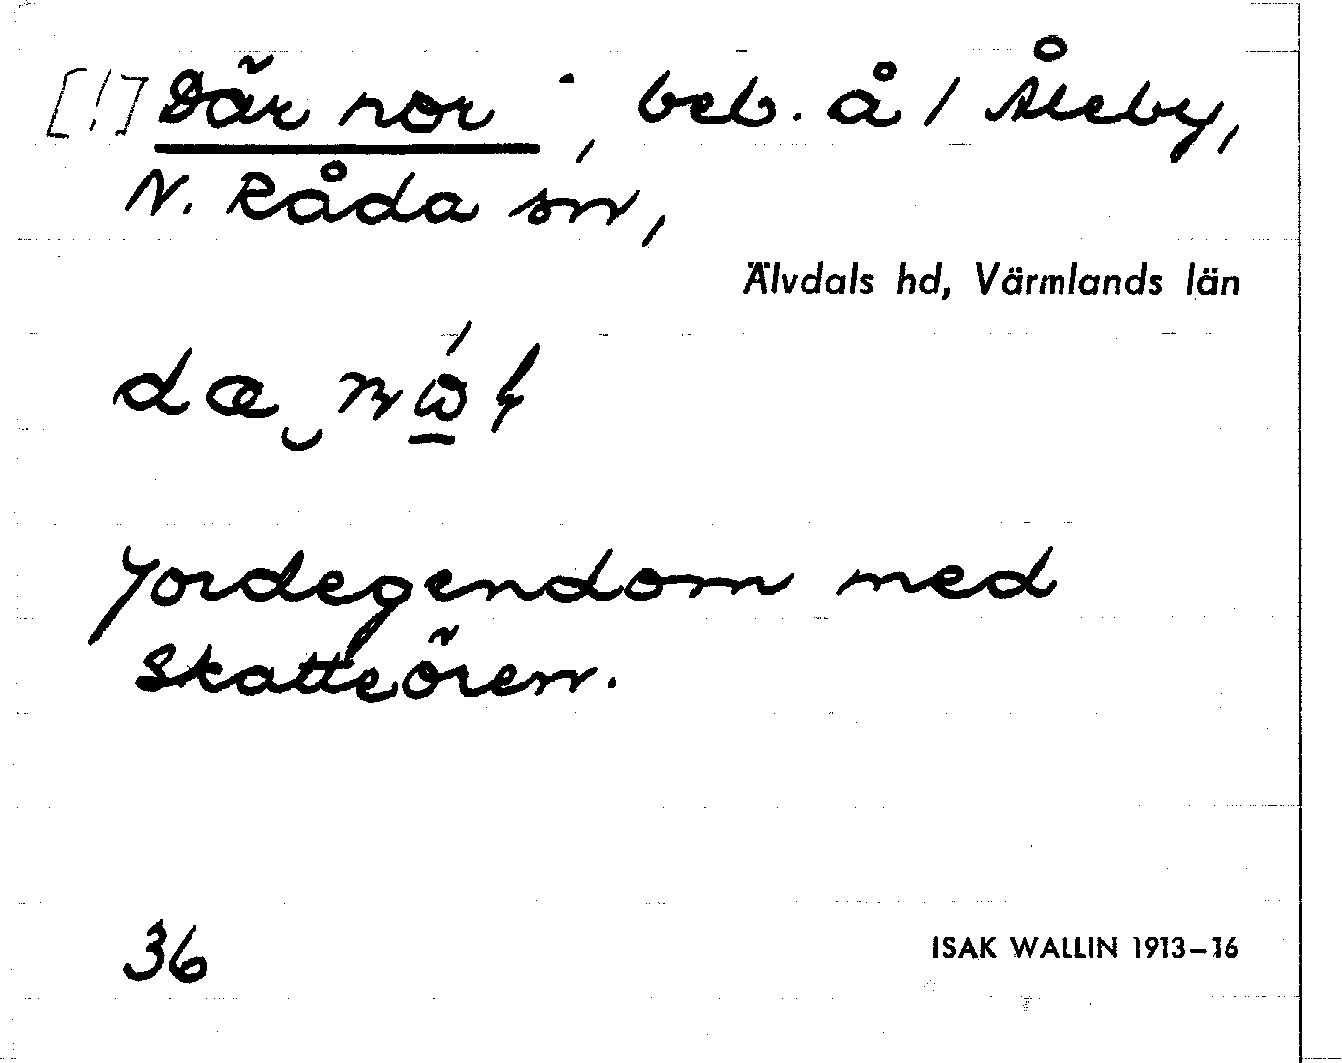 [!] Där nor -, beb. å 1 Åleby,
N. Råda sn,
Älvdals hd, Värmlands län
Jordegendom med
Skatteören.
36
ISAK WALLIN 1913–16